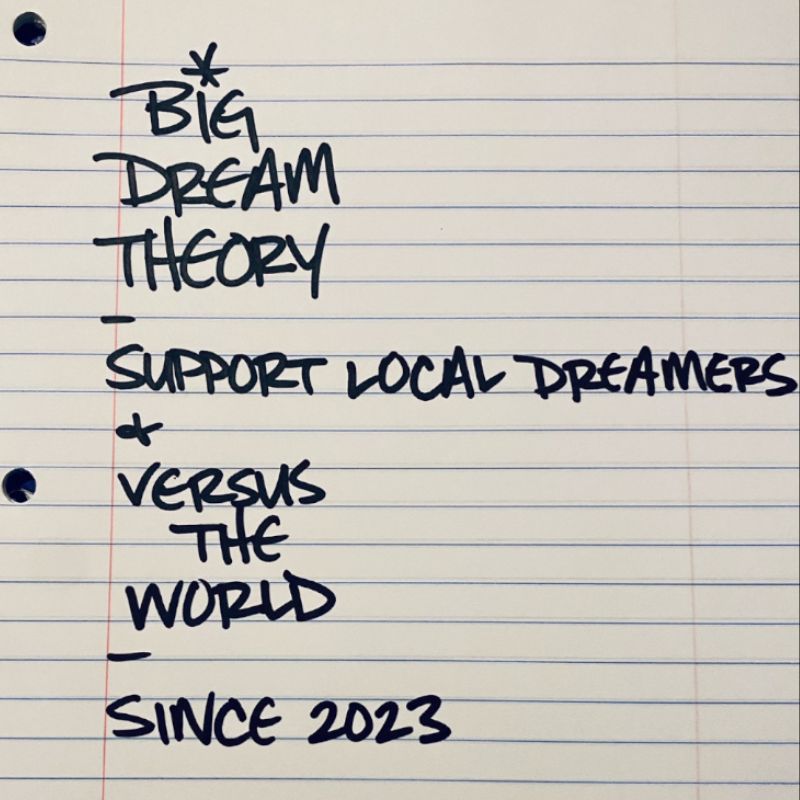 *
BIG
DREAM
THEORY
-
SUPPORT LOCAL DREAMERS
&
VERSUS
THE
WORLD
-
SINCE 2023